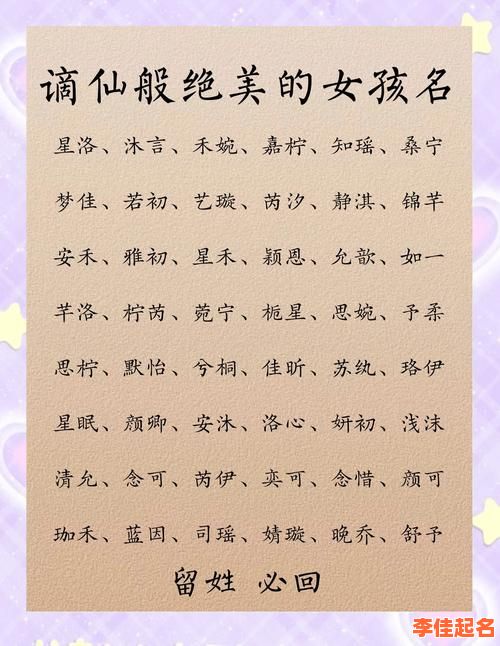 谪仙般绝美的女孩名
星洛、沐言、禾婉、嘉柠、知瑶、桑宁
梦佳、若初、艺璇、芮汐、静淇、锦芊
安禾、雅初、星禾、颖恩、允歆、如一
芊洛、柠芮、菀宁、栀星、思婉、予柔
思柠、默怡、兮桐、佳昕、苏纨、珞伊
星眠、颜卿、安沐、洛心、妍初、浅沫
清允、念可、芮伊、奕可、念惜、颜可
珈禾、蓝因、司瑶、婧璇、晚乔、舒予
留姓 必回
李佳起名